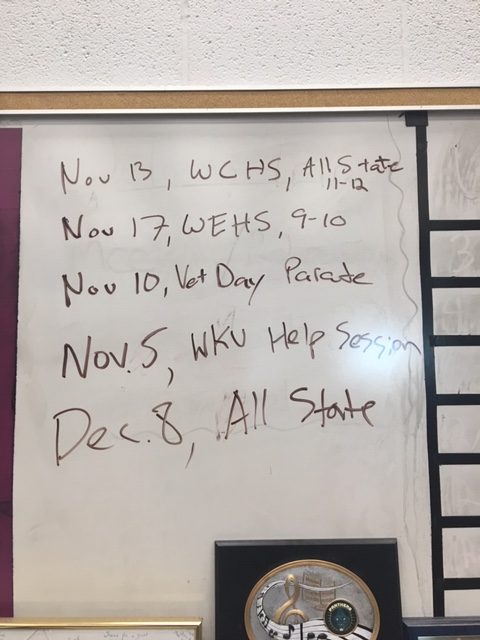 Nov 13, WCHS, All State
11-12
Nov 17, WEHS, 9-10
Nov 10, Vet Day Parade
Nov. 5, WKU Help Session
Dec. 8, All State
PANTHERS